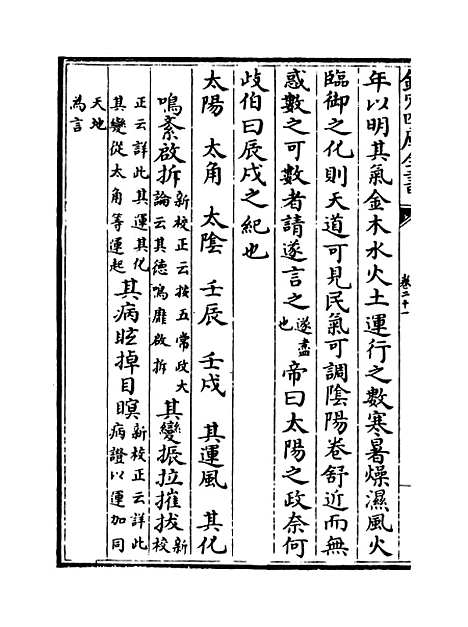 欽定四庫全書
卷二十一
年以明其氣金木水火土運行之數寒暑燥濕風火
臨御之化則天道可見民氣可調陰陽卷舒近而無
惑數之可數者請遂言之遂盡也帝曰太陽之政奈何
歧伯曰辰戌之紀也
太陽 太角 太陰 壬辰 壬戌 其運風 其化
鳴紊啟拆新校正云按五常政大論云其德鳴靡啟拆其變振拉摧拔新校
正云詳此其運其化其變從太角等運起其病眩掉目瞑新校正云詳此病證以運加同
天地為言